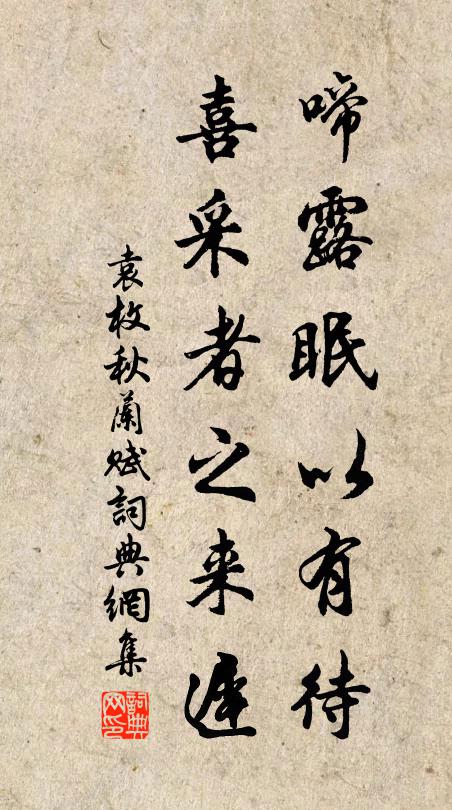 啼露眠以有待
喜采者之来遲
袁枚秋蘭賦詞典網集
詞典
网印